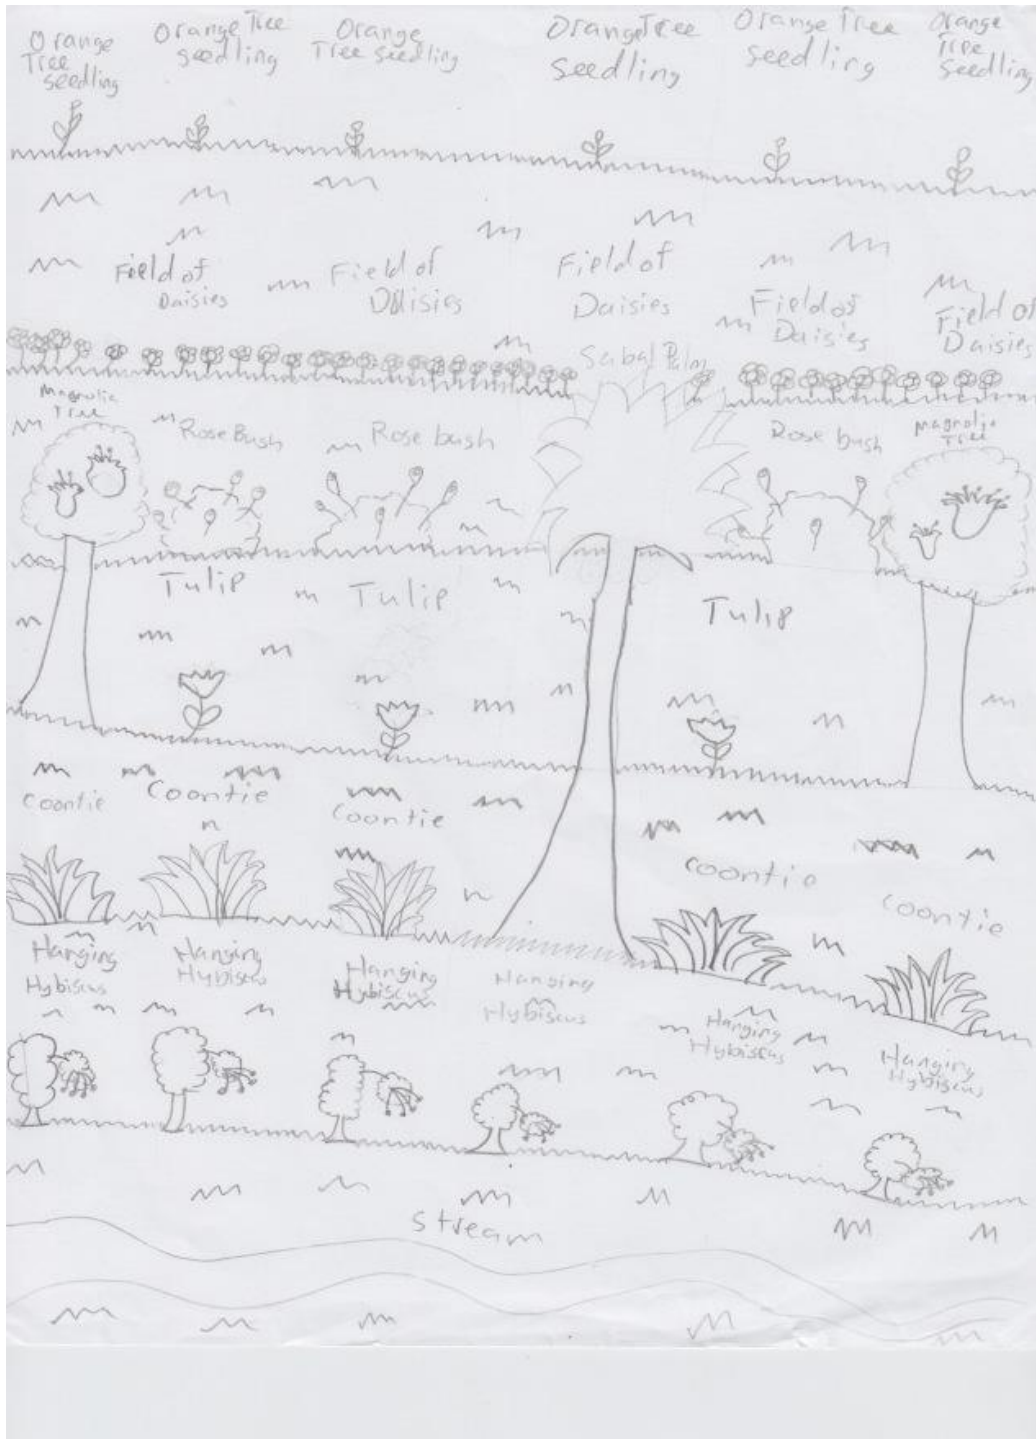 Orange
Tree
seedling
Orange Tree
seedling
Orange
Tree seedling
Orange Tree
seedling
Orange Tree
seedling
Orange
Tree
seedling
Field of
Daisies
Field of
Daisies
Field of
Daisies
Field of
Daisies
Field of
Daisies
Sabal Palm
Magnolia
Tree
Rose Bush
Rose bush
Rose bush
Magnolia
Tree
Tulip
Tulip
Tulip
Coontie
Coontie
Coontie
Coontie
Coontie
Hanging
Hybiscus
Hanging
Hybiscus
Hanging
Hybiscus
Hanging
Hybiscus
Hanging
Hybiscus
Hanging
Hybiscus
Stream